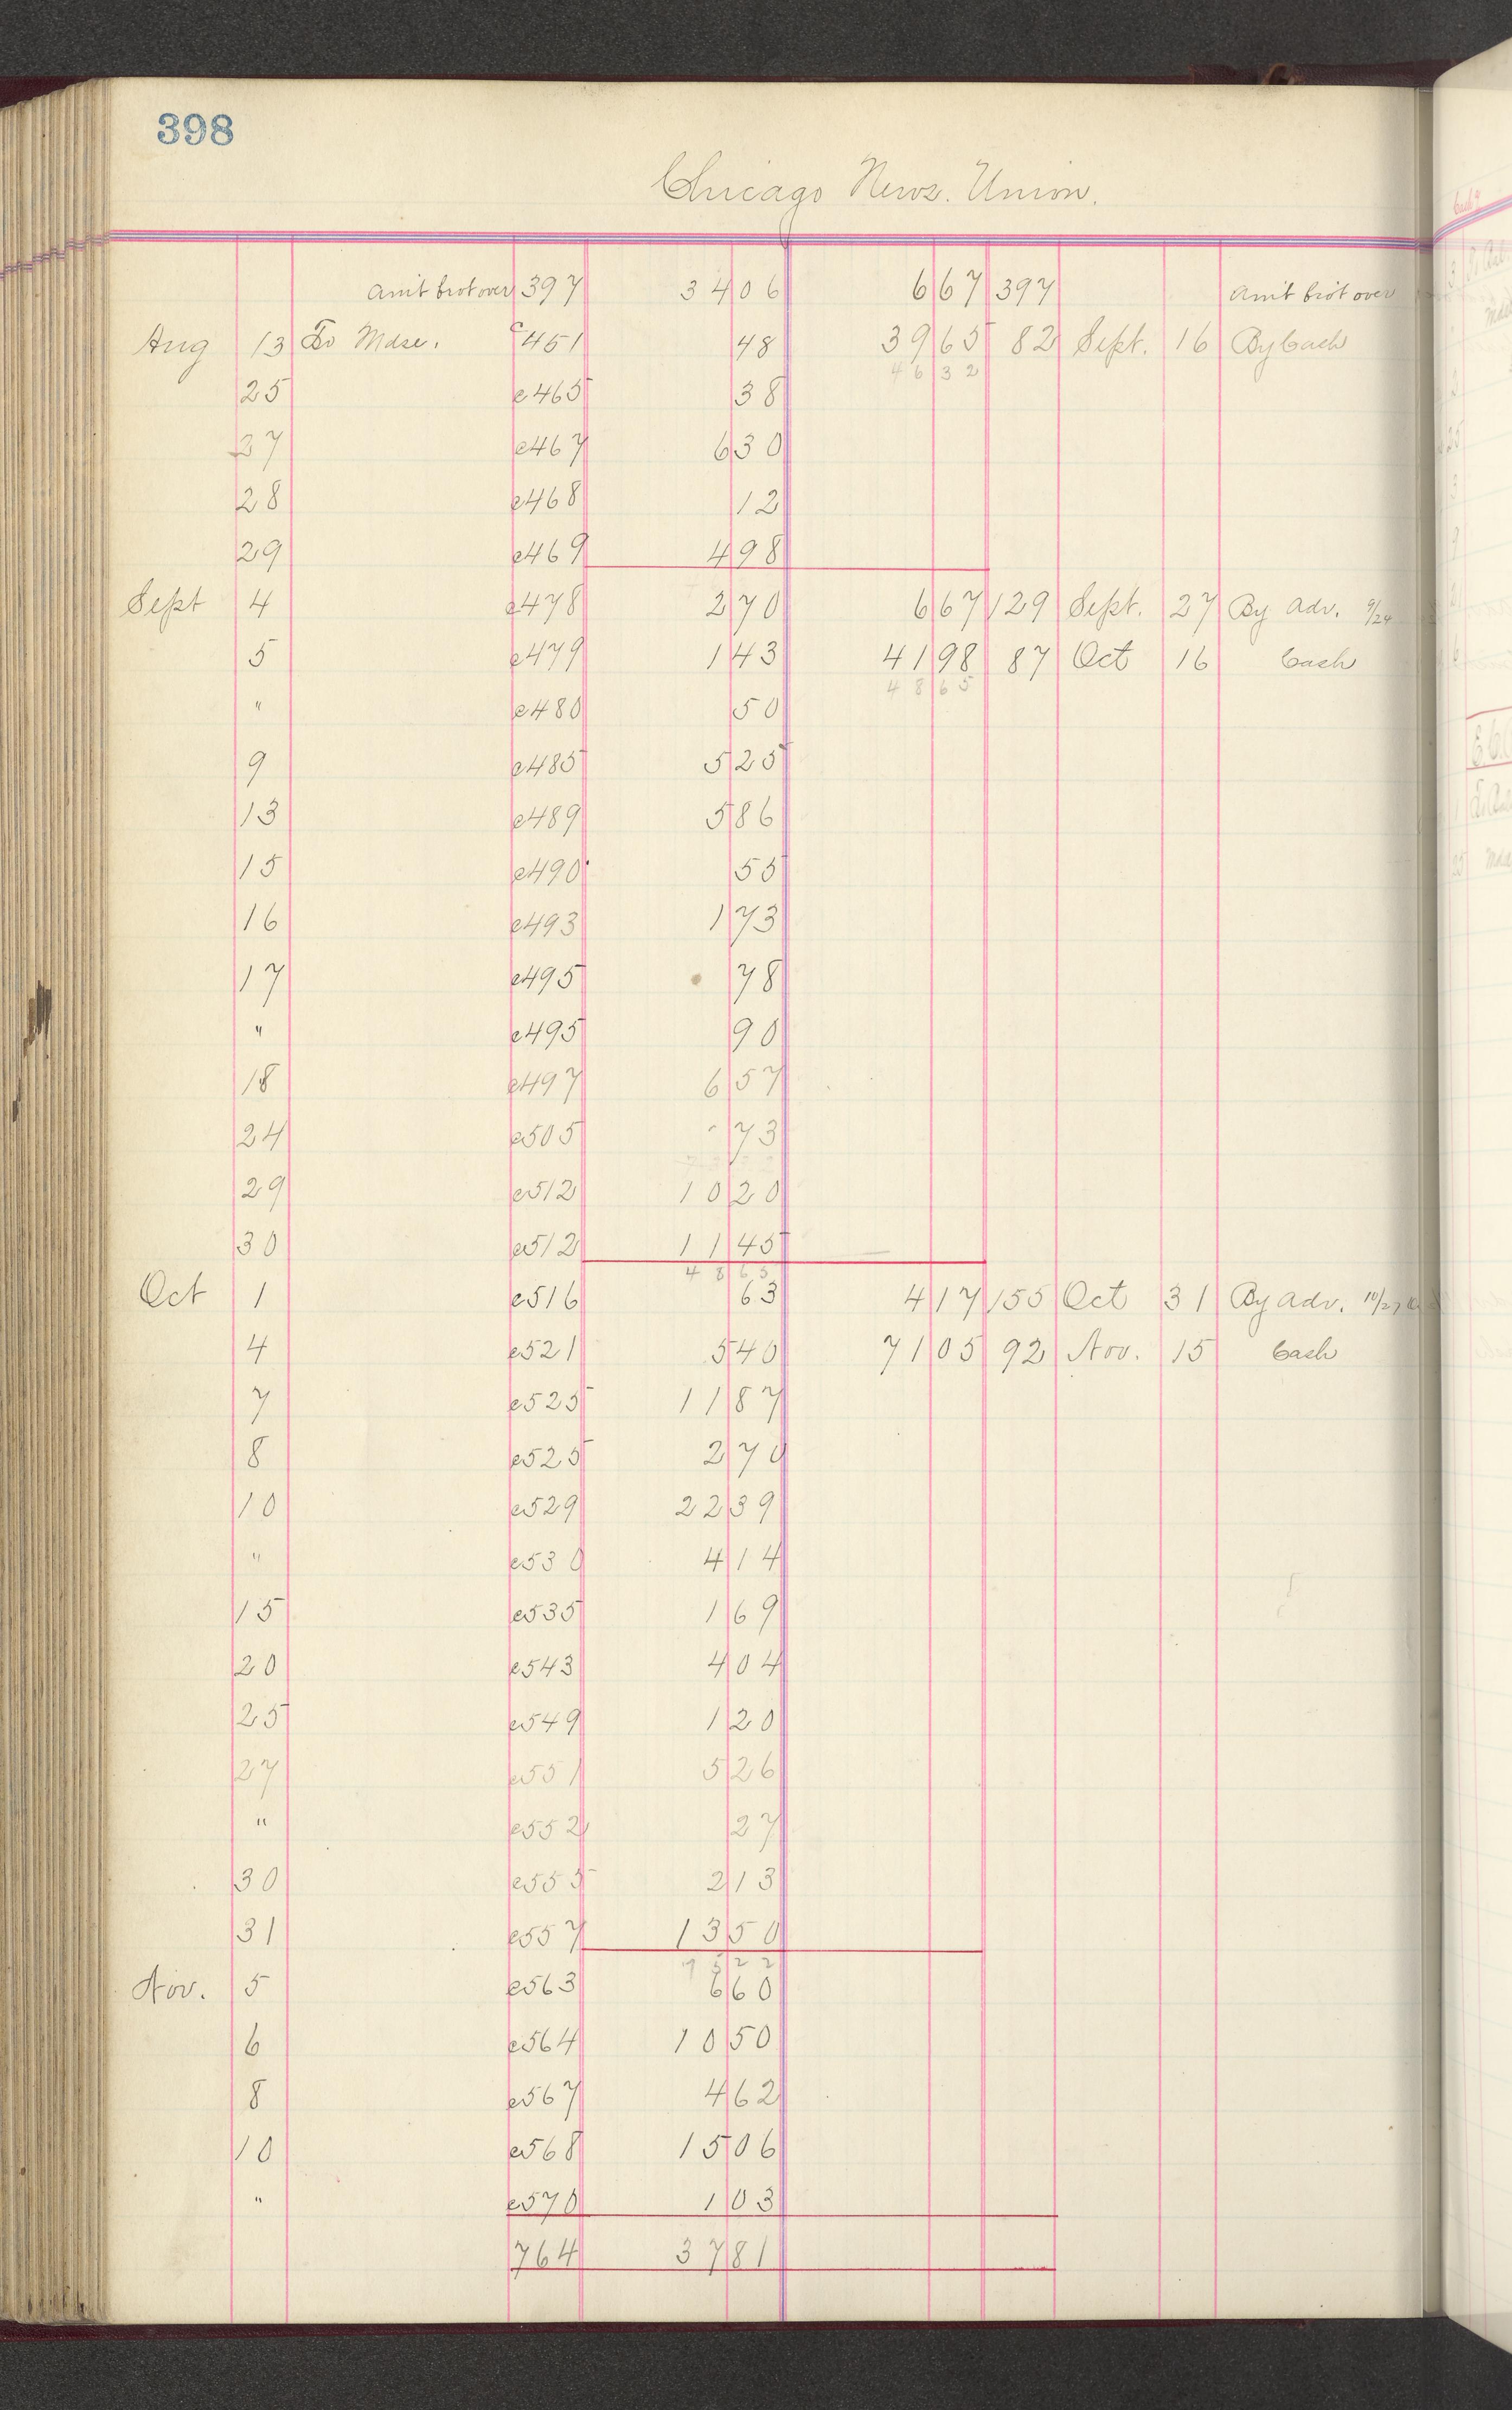 398
Chicago News. Union.
Amt brot over 397 34 06 6 67 397 Amt brot over
Aug 13 To Mdse. c451 48 39 65 82 Sept. 16 By Cash
46 32
25 c465 38
27 c467 6 30
28 c468 12
29 c469 4 98
Sept 4 c478 2 70 6 67 129 Sept. 27 By Adv. 9/24
5 c479 1 43 41 98 87 Oct 16 Cash
48 65
" c480 50
9 c485 5 25
13 c489 5 86
15 c490 55
16 c493 1 73
17 c495 78
" c495 90
18 c497 6 57
24 c505 73
29 c512 10 20
30 c512 11 45
48 65
Oct 1 c516 63 4 17 155 Oct 31 By Adv. 10/27
4 c521 5 40 71 05 92 Nov. 15 Cash
7 c525 11 87
8 c525 2 70
10 c529 22 39
" c530 4 14
15 c535 1 69
20 c543 4 04
25 c549 1 20
27 c551 5 26
" c552 27
30 c555 2 13
31 c557 13 50
75 22
Nov. 5 c563 6 60
6 c564 10 50
8 c567 4 62
10 c568 15 06
" c570 1 03
764 37 81